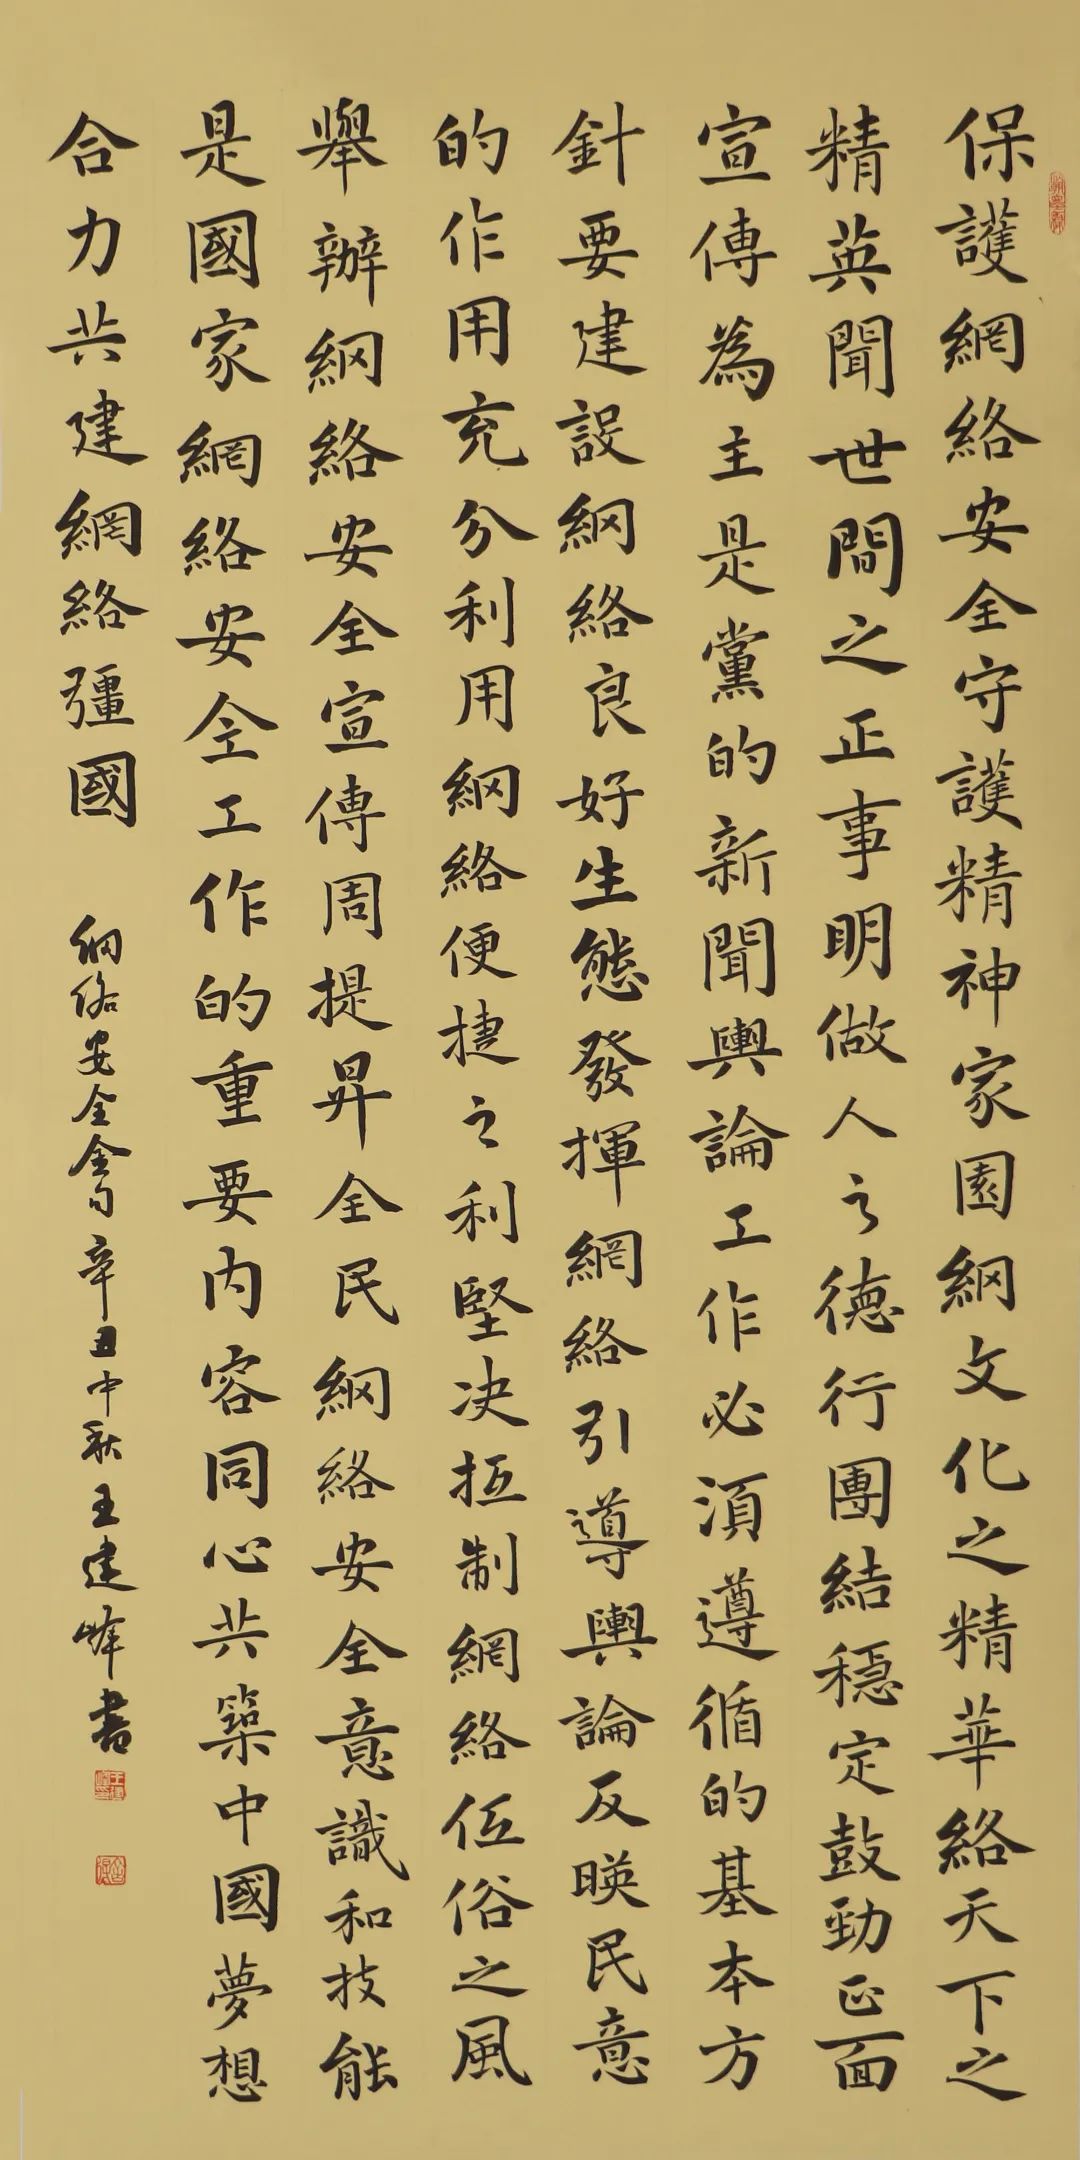 保護網絡安全守護精神家園網文化之精華絡天下之
精英聞世間之正事明做人之德行團結穩定鼓勁正面
宣傳為主是黨的新聞輿論工作必須遵循的基本方
針要建設網絡良好生態發揮網絡引導輿論反映民意
的作用充分利用網絡便捷之利堅決抵制網絡低俗之風
舉辦網絡安全宣傳周提昇全民網絡安全意識和技能
是國家網絡安全工作的重要內容同心共築中國夢想
合力共建網絡彊國
網絡安全金句辛丑中秋王建峰書